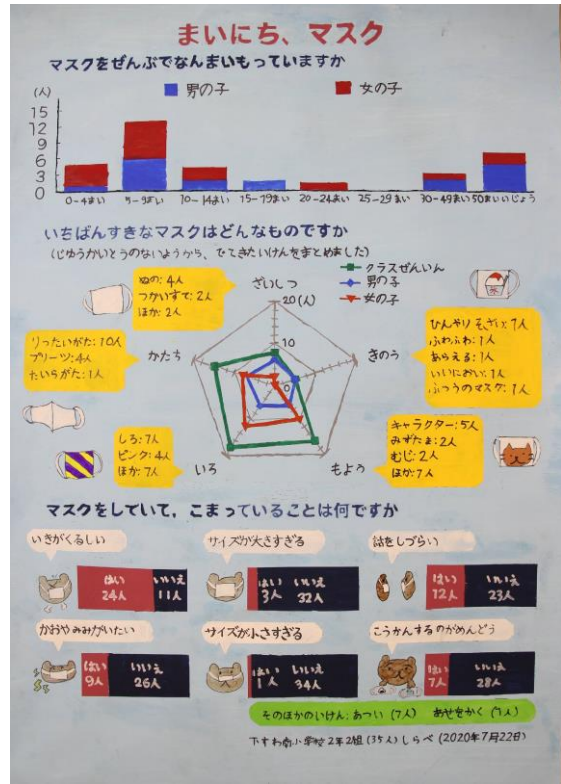 まいにち、マスク
マスクをぜんぶでなんまいもっていますか
(人)
男の子
女の子
15
12
9
6
3
0
0-4まい
5-9まい
10-14まい
15-19まい
20-24まい
25-29まい
30-49まい
50まいいじょう
いちばんすきなマスクはどんなものですか
(じゆうかいとうのないようから、でてきたいけんをまとめました)
クラスぜんいん
男の子
女の子
ぬの:4人
つかいすて:2人
ほか:2人
ざいしつ
20(人)
10
0
りったいがた:10人
プリーツ:4人
たいらがた:1人
かたち
きのう
ひんやりそざい:1人
ふわふわ:1人
あらえる:1人
いいにおい:1人
ふつうのマスク:1人
しろ:7人
ピンク:4人
ほか:7人
いろ
もよう
キャラクター:5人
みずたま:2人
むじ:2人
ほか:7人
マスクをしていて,こまっていることは何ですか
いきがくるしい
はい
24人
いいえ
11人
サイズが大きすぎる
はい
3人
いいえ
32人
話をしづらい
はい
12人
いいえ
23人
かおやみみがいたい
はい
9人
いいえ
26人
サイズが小さすぎる
はい
1人
いいえ
34人
こうかんするのがめんどう
はい
7人
いいえ
28人
そのほかのいけん:あつい(7人) あせをかく(7人)
下すわ南小学校2年2組(35人)しらべ(2020年7月22日)